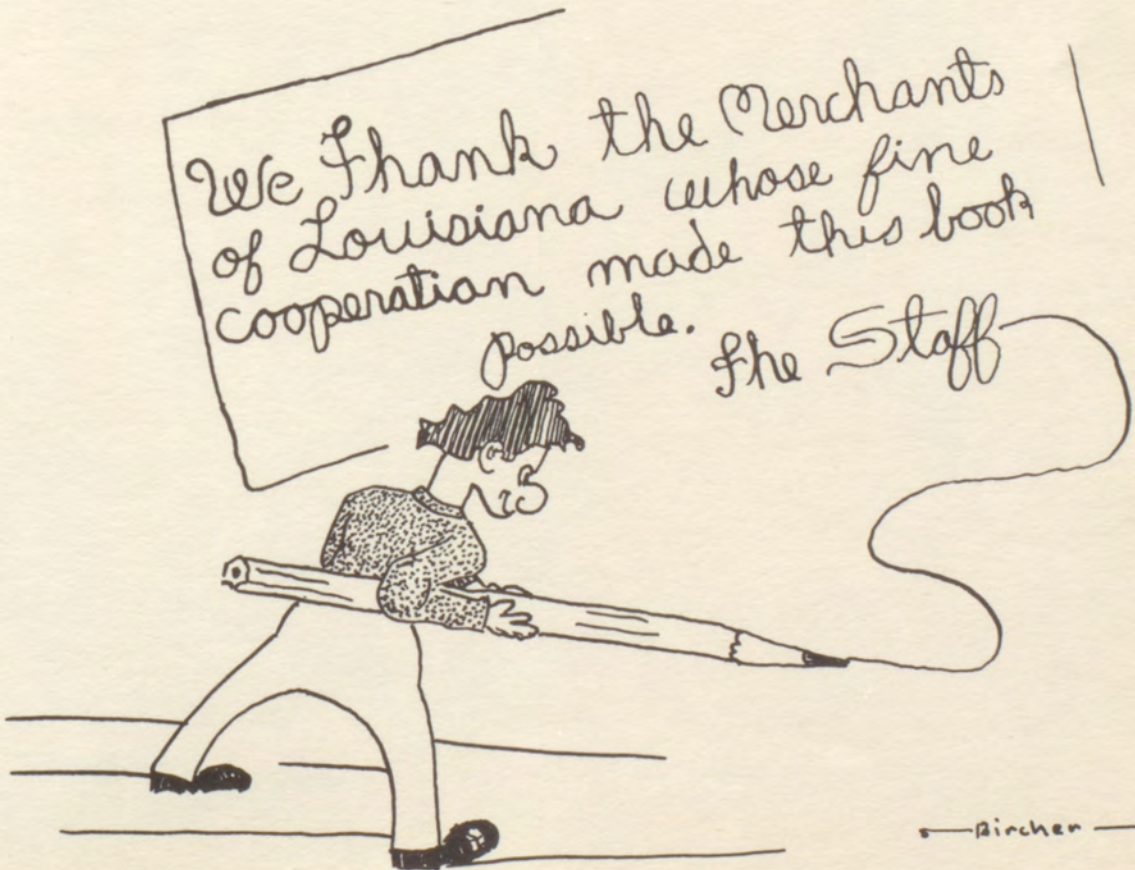 We Thank the Merchants
of Louisiana whose fine
cooperation made this book
possible.
The Staff
Bircher